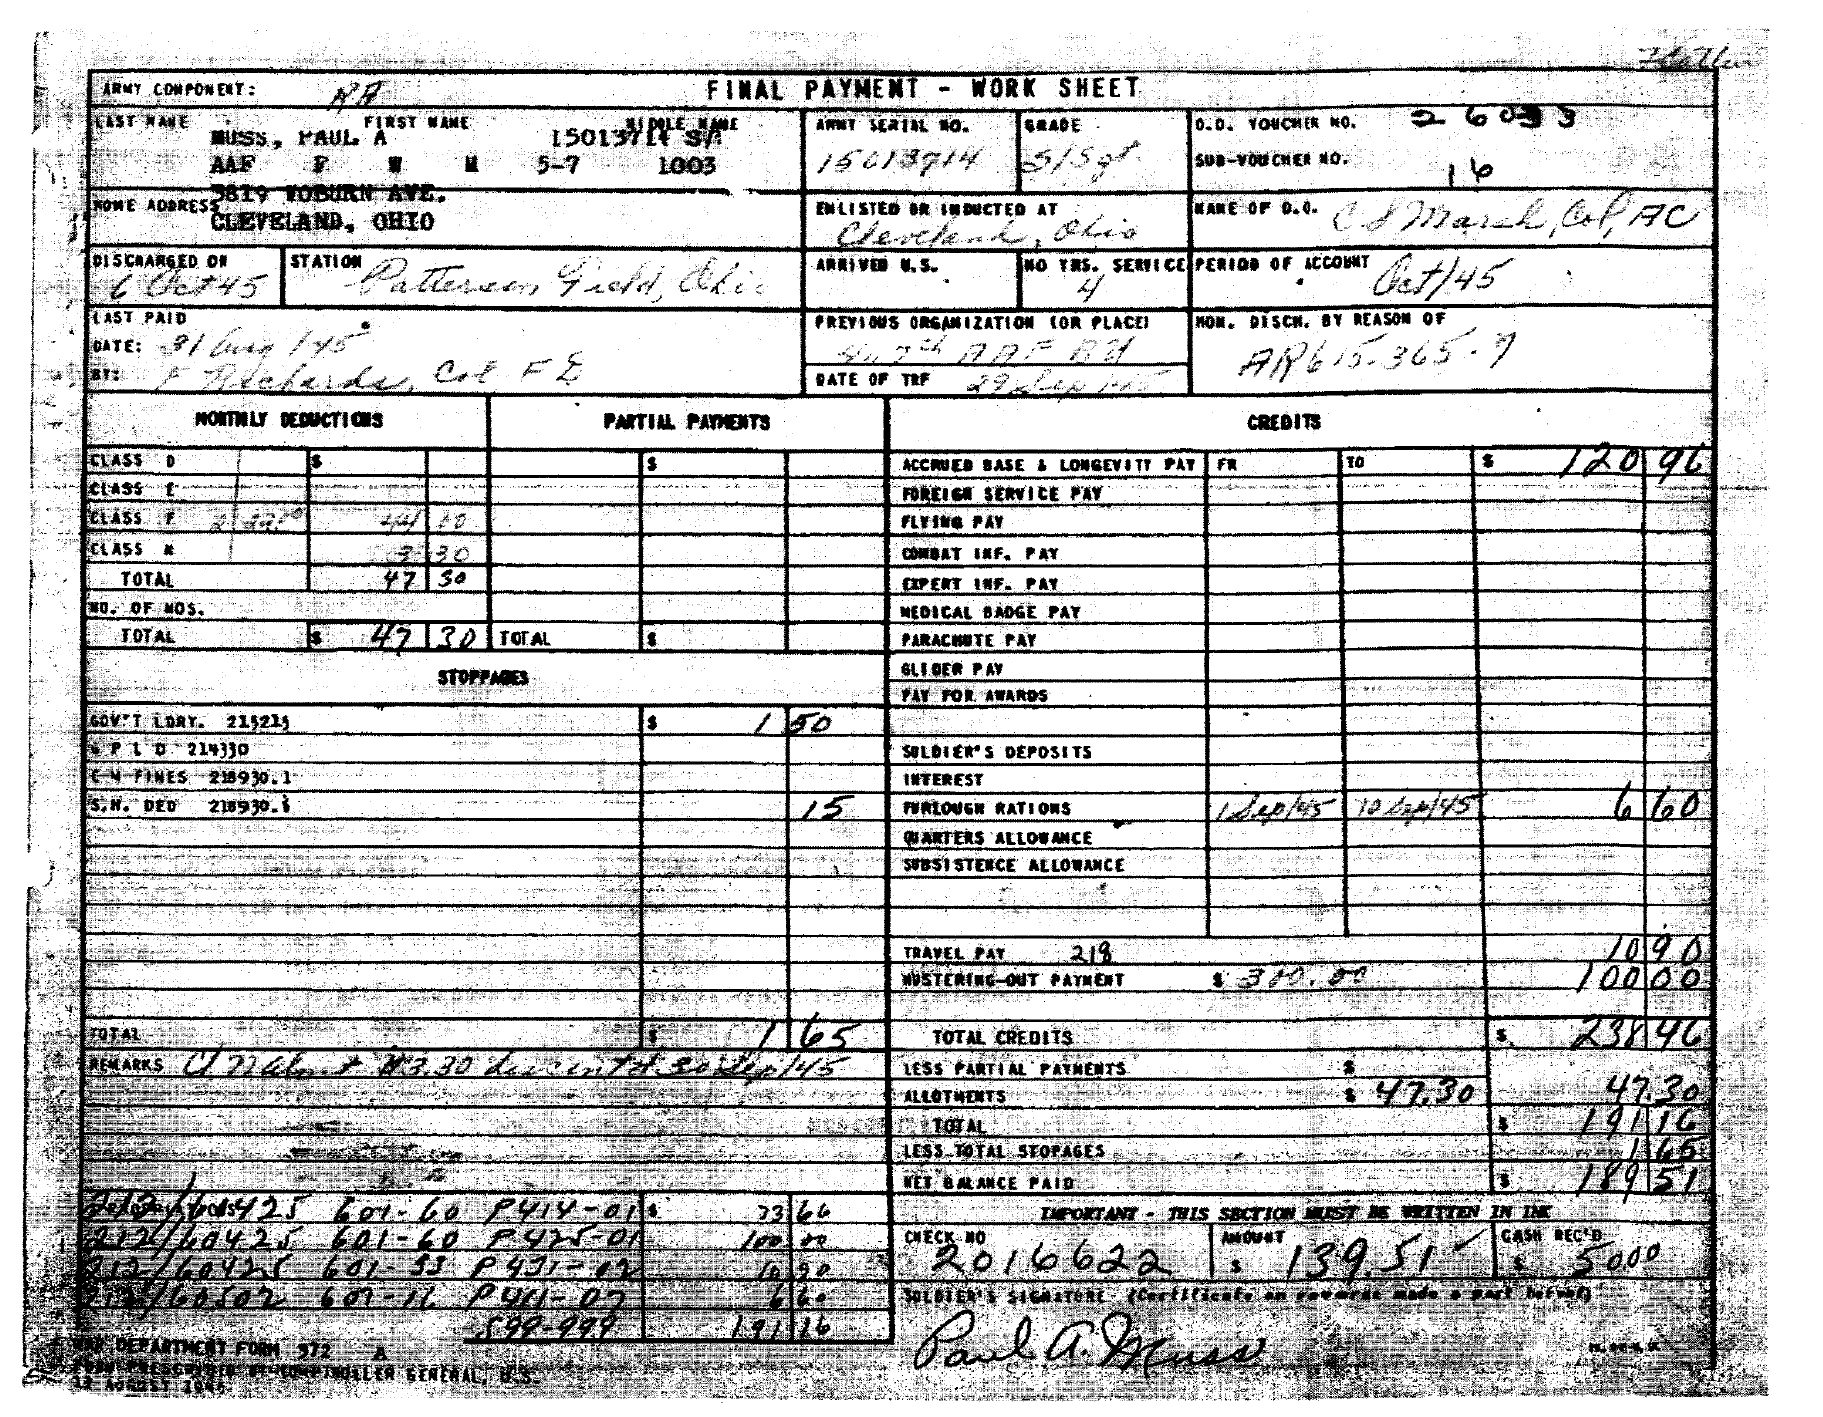 ARMY COMPONENT: RA
FINAL PAYMENT - WORK SHEET
LAST NAME FIRST NAME MIDDLE NAME
MUSS, PAUL A 15013714 S/
AAF F W M 5-7 1003
ARMY SERIAL NO.
15013714
GRADE
S/Sgt
D.O. VOUCHER NO. 26033
SUB-VOUCHER NO. 16
HOME ADDRESS 3819 WOBURN AVE.
CLEVELAND, OHIO
ENLISTED OR INDUCTED AT
Cleveland, Ohio
NAME OF D.O. C S Marsh, Col, AC
DISCHARGED ON
6 Oct 45
STATION Patterson Field, Ohio
ARRIVED U.S.
NO YRS. SERVICE
4
PERIOD OF ACCOUNT Oct/45
LAST PAID
DATE: 31 Aug/45
BY: F Richards, Col F D
PREVIOUS ORGANIZATION (OR PLACE)
AAF BU
DATE OF TRF 29 Sep/45
HON. DISCH. BY REASON OF
AR615-365-7
MONTHLY DEDUCTIONS PARTIAL PAYMENTS CREDITS
CLASS D $ $
CLASS E
CLASS F 44 00
CLASS N 3 30
TOTAL 47 30
NO. OF MOS.
TOTAL $ 47 30 TOTAL $
ACCRUED BASE & LONGEVITY PAY FR TO $ 120 96
FOREIGN SERVICE PAY
FLYING PAY
COMBAT INF. PAY
EXPERT INF. PAY
MEDICAL BADGE PAY
PARACHUTE PAY
GLIDER PAY
PAY FOR AWARDS
SOLDIER'S DEPOSITS
INTEREST
FURLOUGH RATIONS 1 Sep/45 10 Sep/45 6 60
QUARTERS ALLOWANCE
SUBSISTENCE ALLOWANCE
TRAVEL PAY 218 10 90
MUSTERING-OUT PAYMENT $ 300.00 100 00
TOTAL CREDITS $ 238 46
LESS PARTIAL PAYMENTS $
ALLOTMENTS $ 47.30 47.30
TOTAL $ 191 16
LESS TOTAL STOPAGES 1 65
NET BALANCE PAID $ 189 51
STOPPAGES
GOV'T LDRY. 215215 $ 1 50
G P L D 214330
C M FINES 218930.1
S.H. DED 218930.1 15
TOTAL $ 1 65
REMARKS Cl N $3.30 30 Sep/45
212/60425 601-60 P414-01 $ 73 66
212/60425 601-60 P425-01 100 00
212/60425 601-33 P431-02 10 90
212/60502 607-16 P411-07 6 60
599-999 191 16
IMPORTANT - THIS SECTION MUST BE WRITTEN IN INK
CHECK NO
2016622
AMOUNT
$ 139.51
CASH REC'D
$ 50.00
SOLDIER'S SIGNATURE (Certificate on reverse made a part hereof)
Paul A. Muss
WAR DEPARTMENT FORM 372 A
FORM PRESCRIBED BY COMPTROLLER GENERAL, U.S.